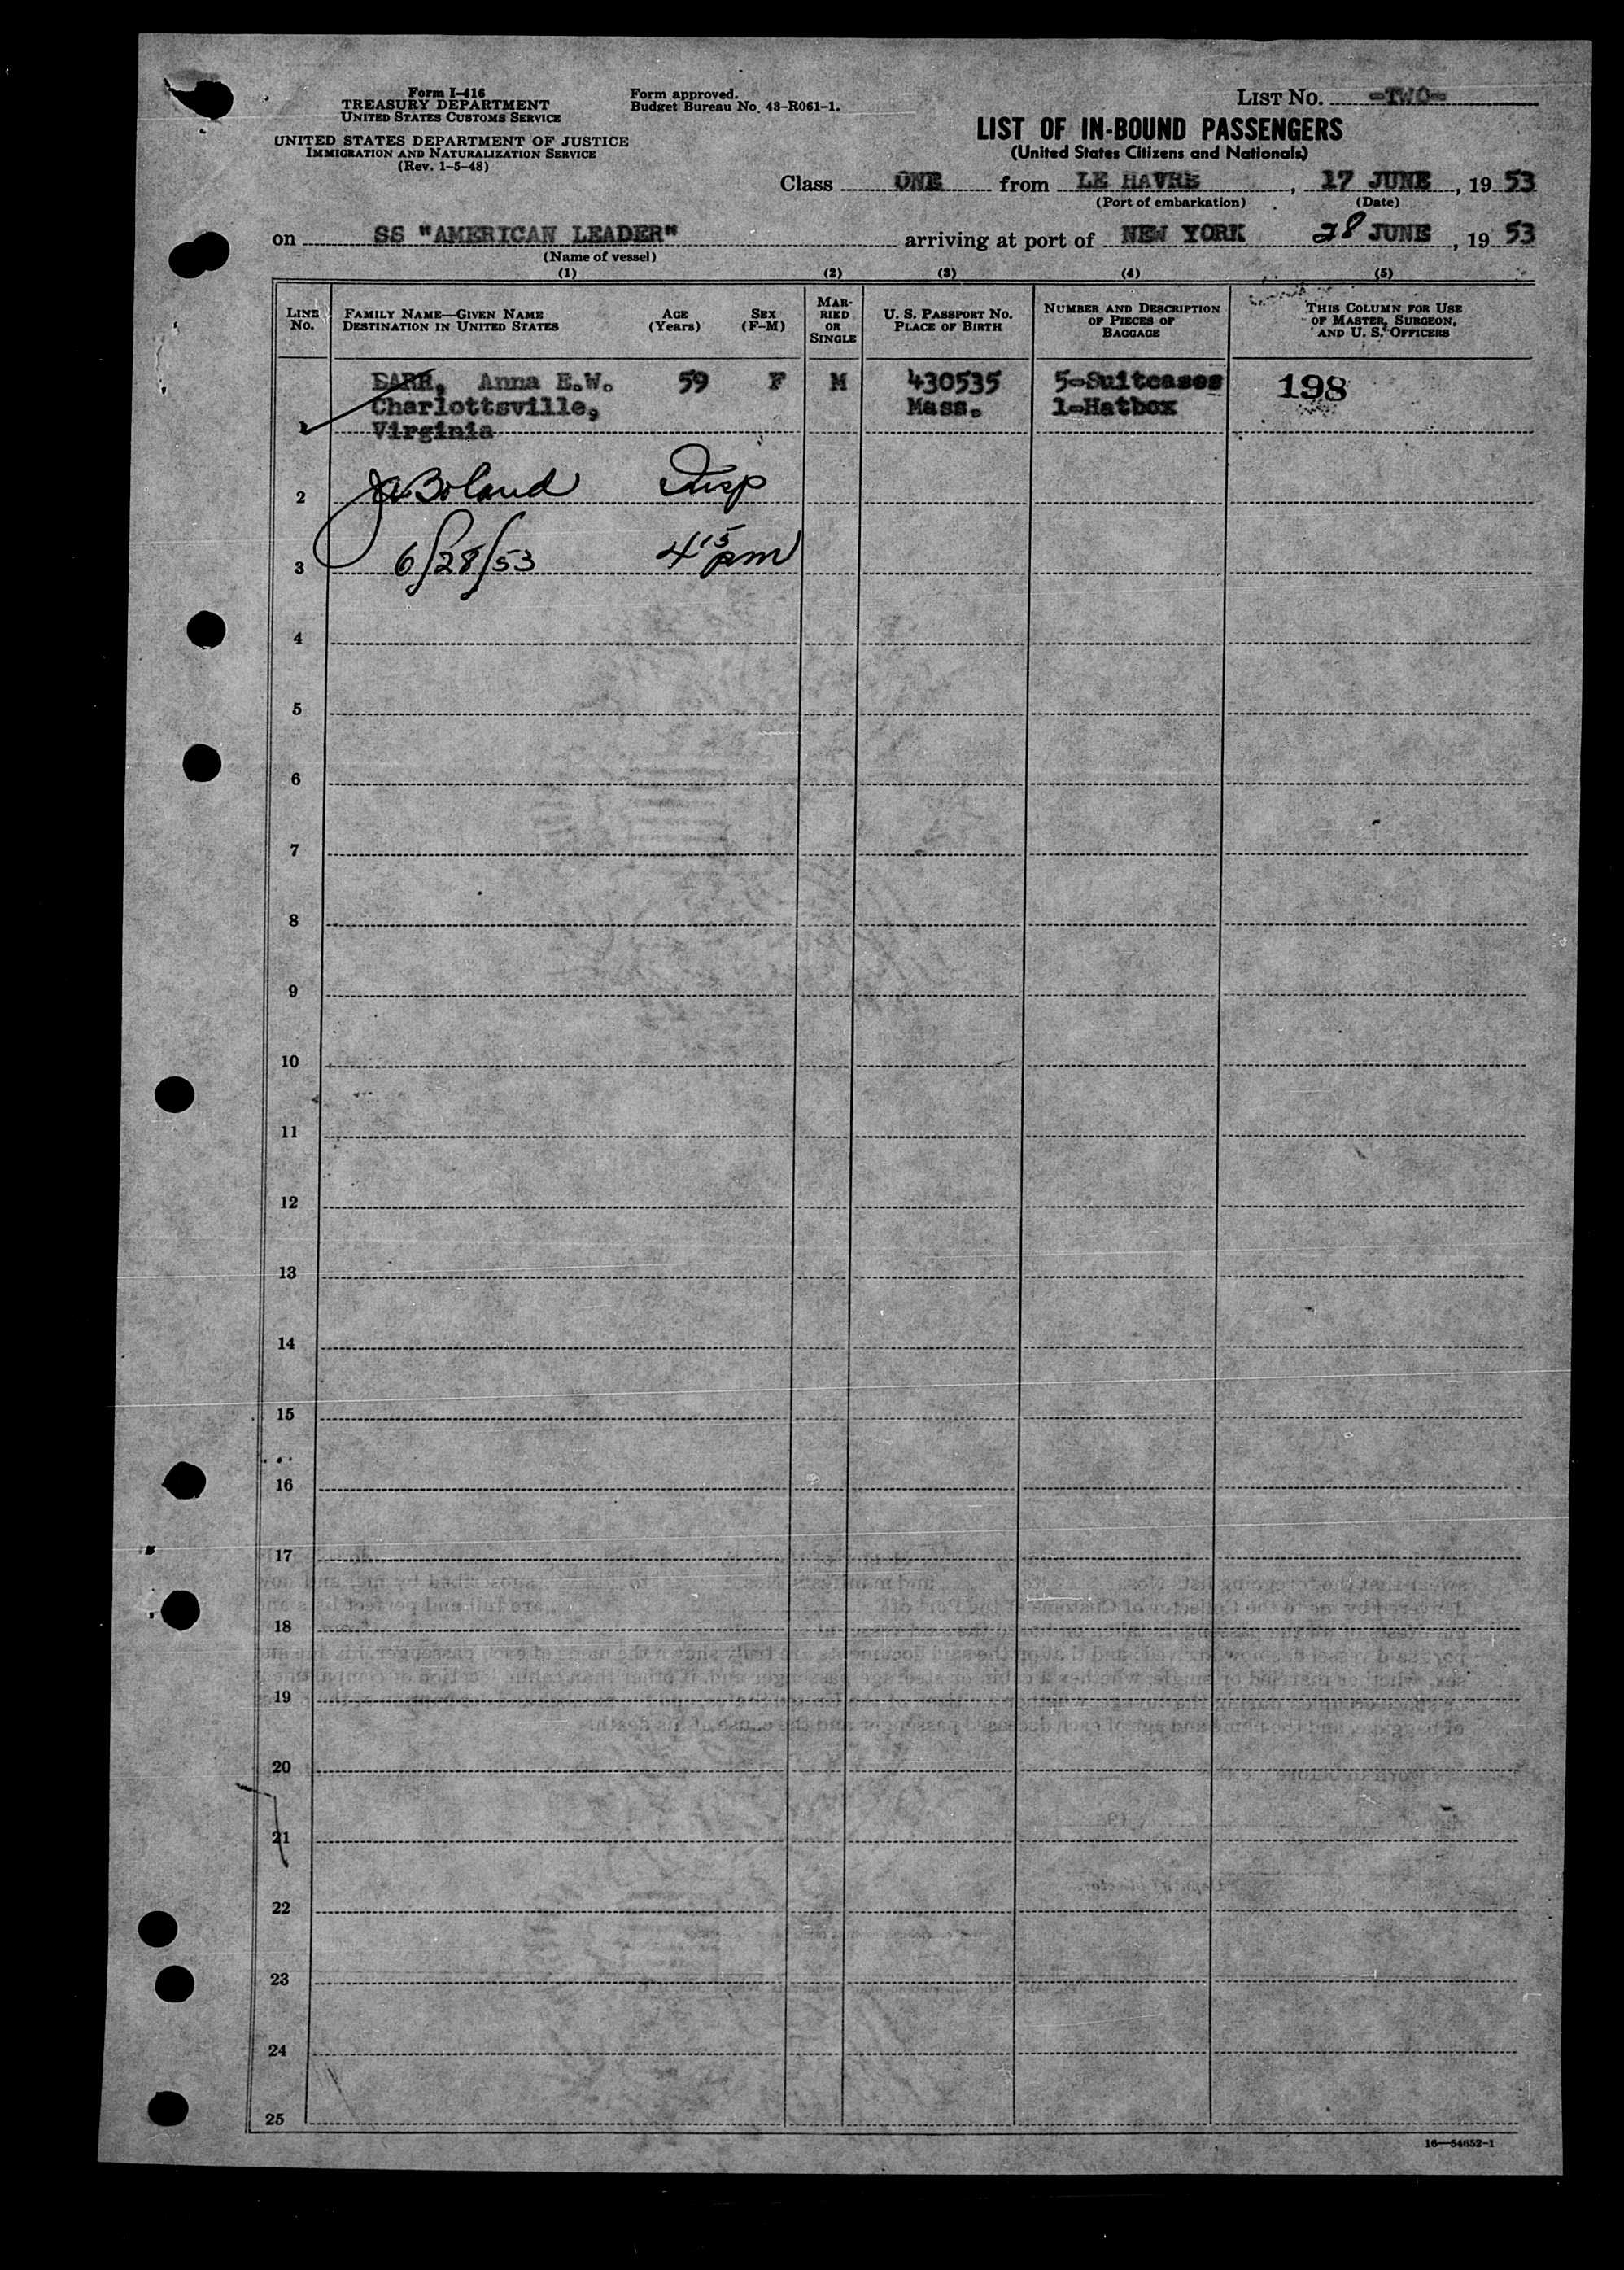 Form I-416
TREASURY DEPARTMENT
UNITED STATES CUSTOMS SERVICE
UNITED STATES DEPARTMENT OF JUSTICE
IMMIGRATION AND NATURALIZATION SERVICE
(Rev. 1-5-48)
Form approved.
Budget Bureau No. 43-R061-1.
LIST NO. -TWO-
LIST OF IN-BOUND PASSENGERS
(United States Citizens and Nationals)
Class ONE from LE HAVRE, 17 JUNE, 19 53
(Port of embarkation) (Date)
on SS "AMERICAN LEADER" arriving at port of NEW YORK 28 JUNE, 19 53
(Name of vessel)
(1) (2) (3) (4) (5)
LINE NO. FAMILY NAME—GIVEN NAME DESTINATION IN UNITED STATES AGE (Years) SEX (F-M) MARRIED OR SINGLE U. S. PASSPORT NO. PLACE OF BIRTH NUMBER AND DESCRIPTION OF PIECES OF BAGGAGE THIS COLUMN FOR USE OF MASTER, SURGEON, AND U. S. OFFICERS
1 Anna E.W. 59 F M 430535 5-Suitcases 198
Charlottsville, Mass. 1-Hatbox
Virginia
2 Boland Insp
3 6/28/53 4 15 pm
4
5
6
7
8
9
10
11
12
13
14
15
16
17
18
19
20
21
22
23
24
25
16—54652-1